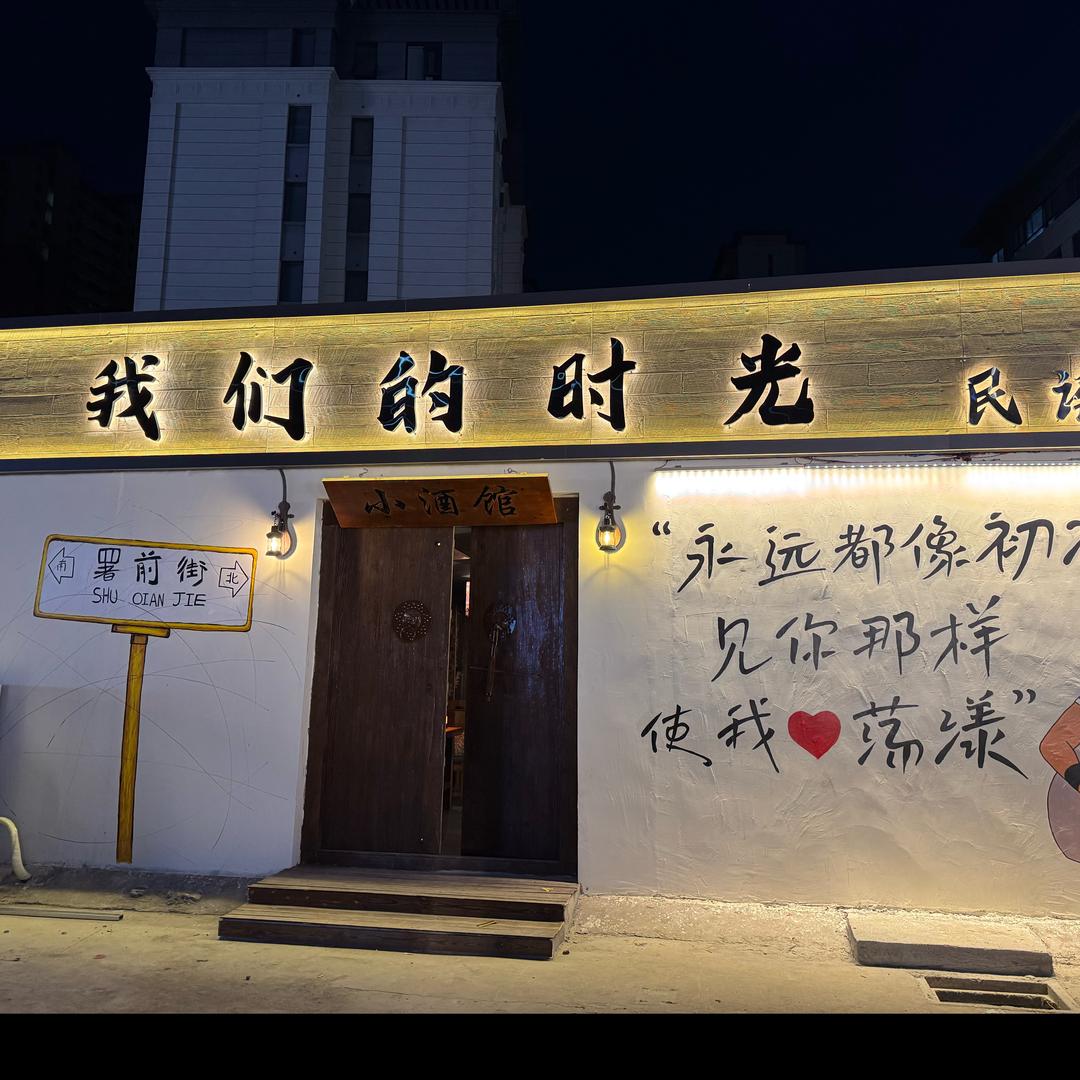 我们的时光 民谣
小酒馆
南 署前街 北
SHU QIAN JIE
“永远都像初次
见你那样
使我❤荡漾”